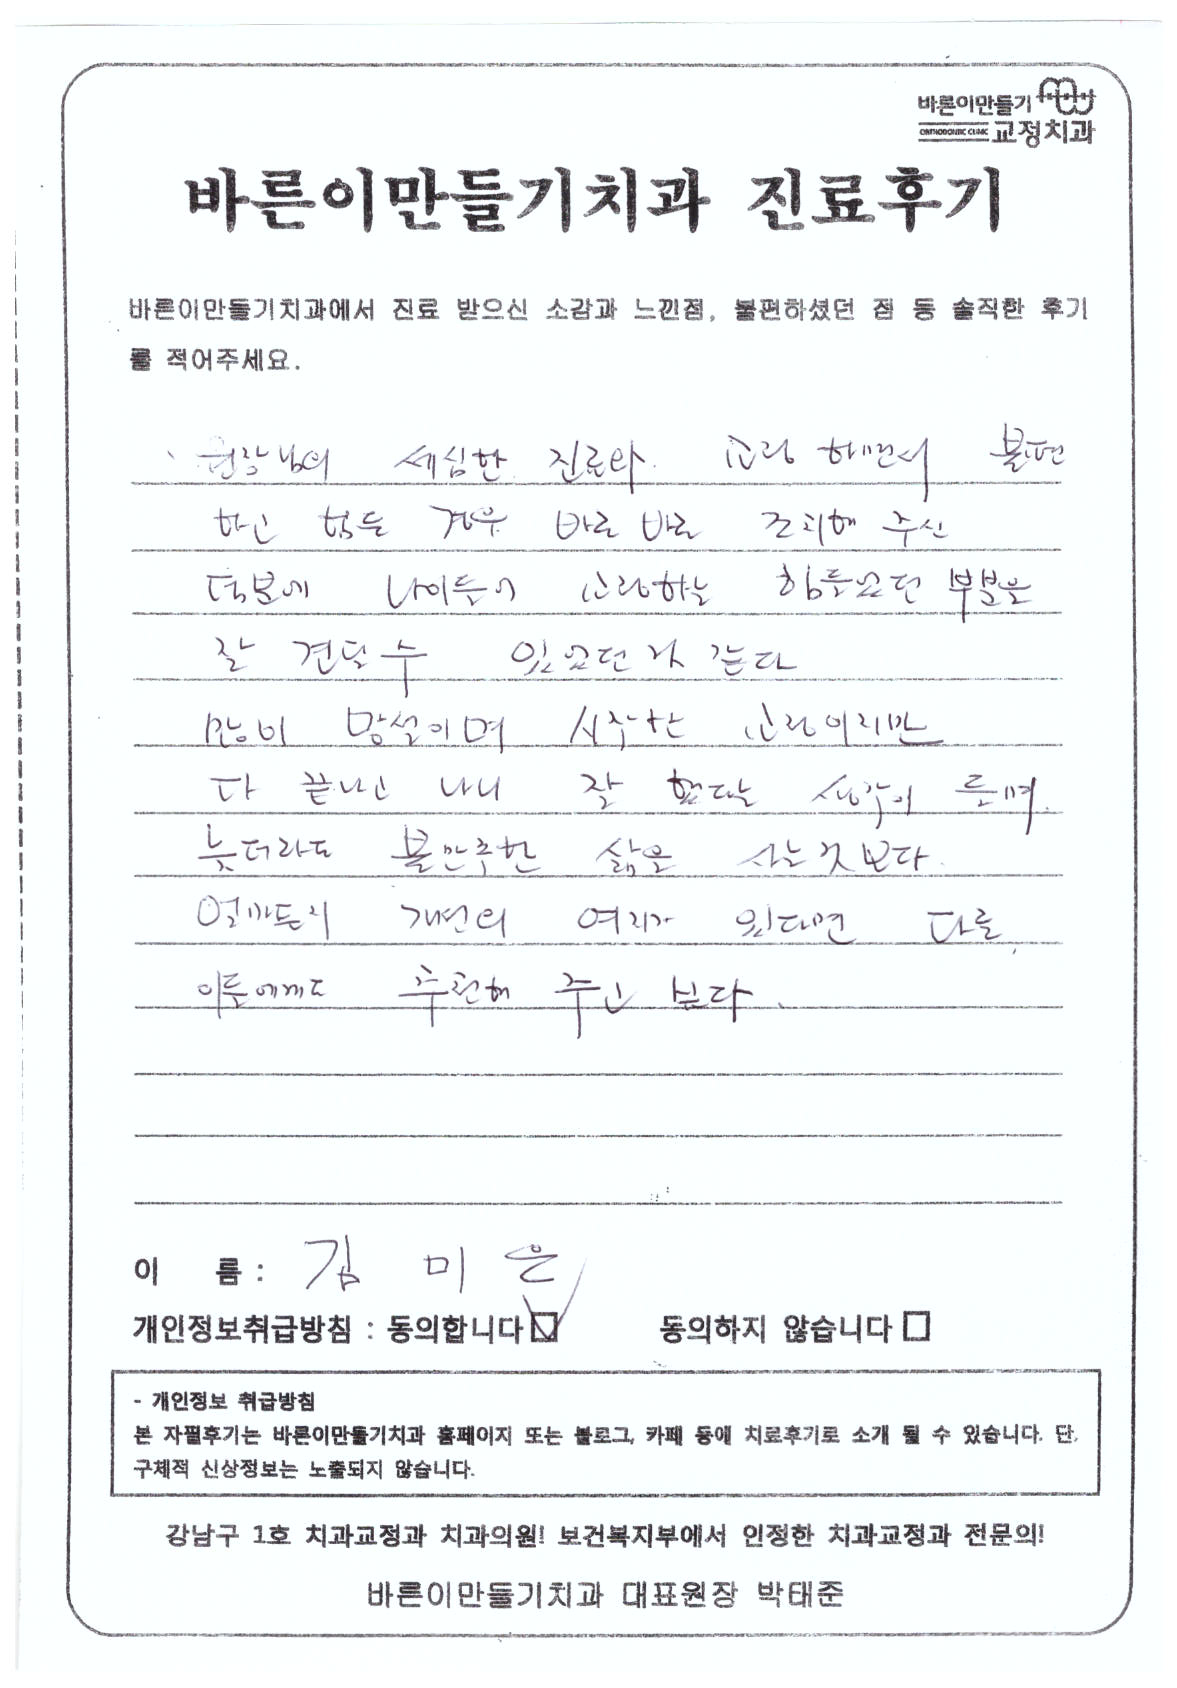 바른이만들기
ORTHODONTIC CLINIC 교정치과
바른이만들기치과 진료후기
바른이만들기치과에서 진료 받으신 소감과 느낀점, 불편하셨던 점 등 솔직한 후기
를 적어주세요.
원장님의 세심한 진료와 교정 하면서 불편
하고 힘든 경우 바로 바로 조치해 주신
덕분에 나이들어 교정하는 힘들었던 부분을
잘 견딜 수 있었던 거 같다
많이 망설이며 시작한 교정이지만
다 끝나고 나니 잘 했다는 생각이 들며
늦더라도 불만족한 삶을 사는것 보다
얼마든지 개선의 여지가 있다면 다른
이들에게도 추천해 주고 싶다.
이 름 : 김 미 은
개인정보취급방침 : 동의합니다 동의하지 않습니다
- 개인정보 취급방침
본 자필후기는 바른이만들기치과 홈페이지 또는 블로그, 카페 등에 치료후기로 소개 될 수 있습니다. 단,
구체적 신상정보는 노출되지 않습니다.
강남구 1호 치과교정과 치과의원! 보건복지부에서 인정한 치과교정과 전문의!
바른이만들기치과 대표원장 박태준